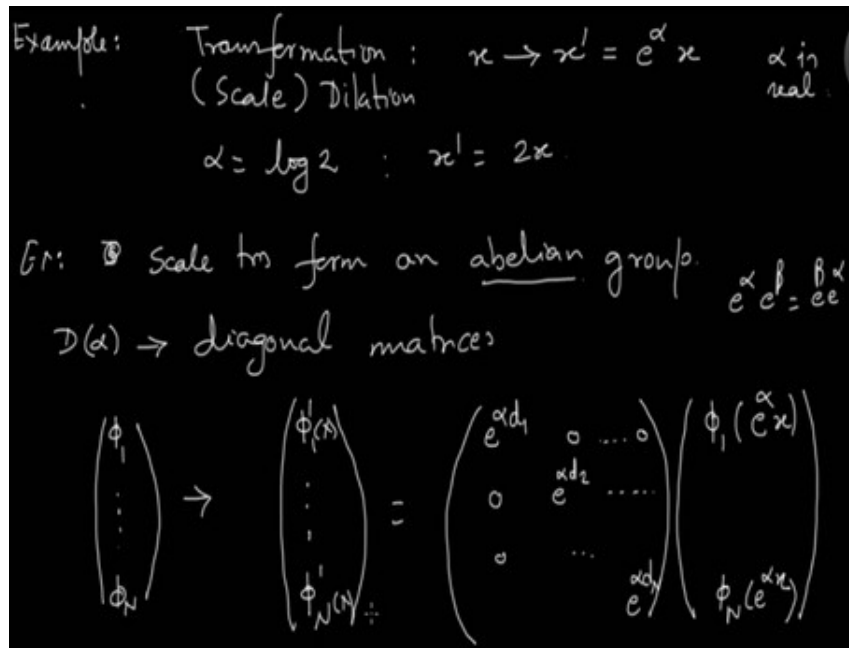 Example: Transformation : x → x' = e^α x α in
(Scale) Dilation real.
α = log 2 : x' = 2x.
Ex: Scale trns form an abelian group. e^α e^β = e^β e^α
D(α) → diagonal matrices
( ϕ_1 ) → ( ϕ'_1(x) ) = ( e^{αd_1} 0 .... 0 ) ( ϕ_1(e^α x) )
0 e^{αd_2} .....
0 ...
ϕ_N ϕ'_N(x) e^{αd_N} ϕ_N(e^{αx})